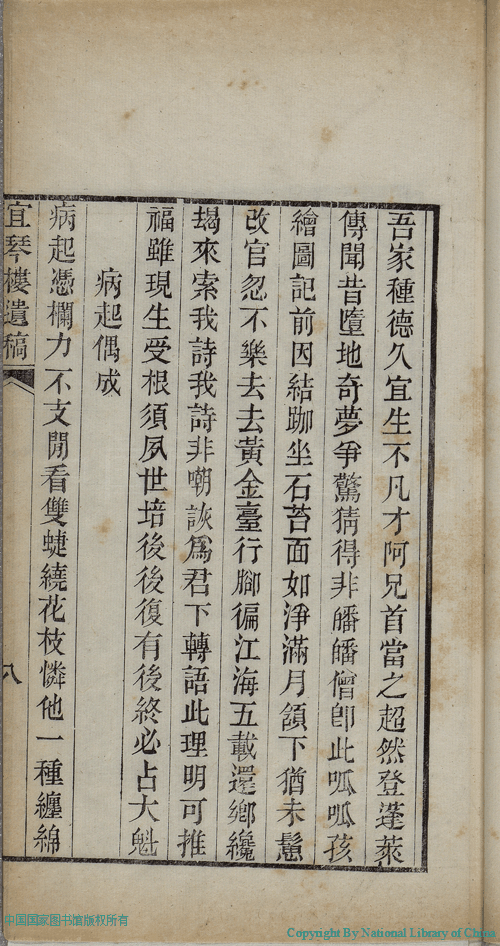 吾家種德久宜生不凡才阿兄首當之超然登蓬萊
傳聞昔墮地奇夢爭驚猜得非皤皤僧卽此呱呱孩
繪圖記前因結跏坐石苔面如淨滿月頷下猶未鬖
改官忽不樂去去黃金臺行腳徧江海五載還鄉纔
朅來索我詩我詩非嘲詼爲君下轉語此理明可推
福雖現生受根須夙世培後後復有後終必占大魁
病起偶成
病起憑欄力不支閒看雙蜨繞花枝憐他一種纏綿
宜琴樓遺稿
八
中国国家图书馆版权所有
Copyright By National Library of China